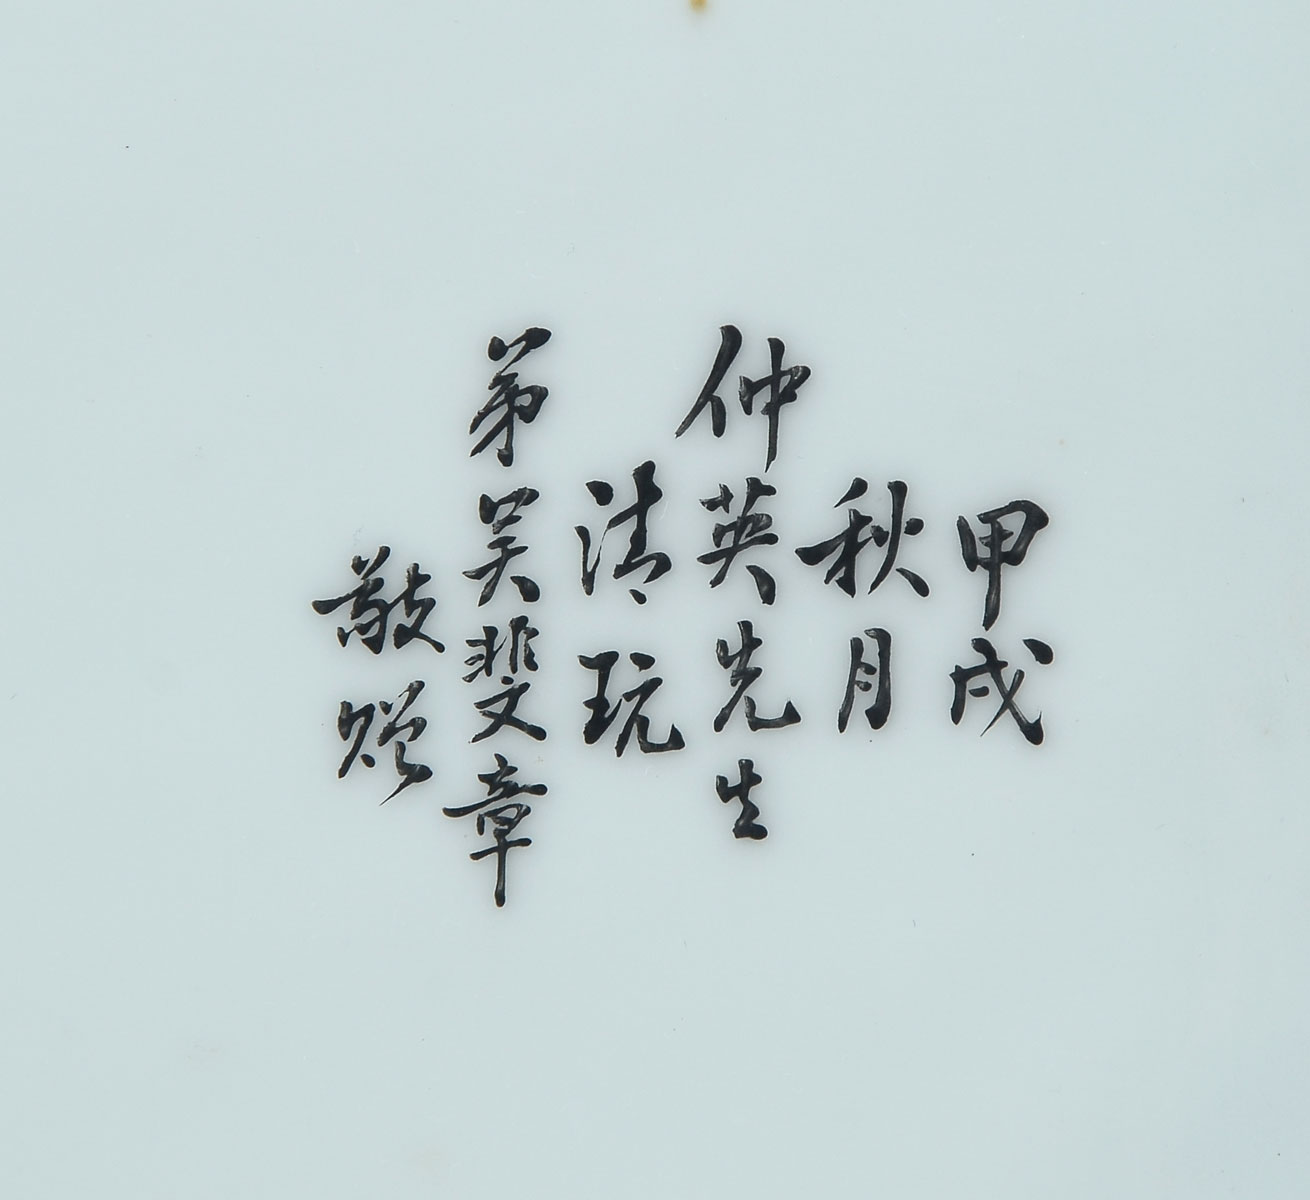 甲戌
秋月
仲英先生
清玩
弟吴斐章
敬赠